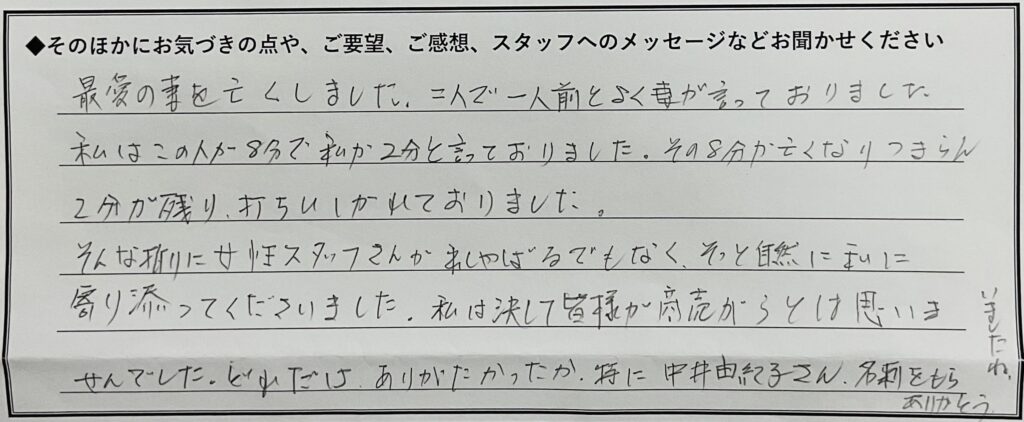 ◆そのほかにお気づきの点や、ご要望、ご感想、スタッフへのメッセージなどお聞かせください
最愛の妻を亡くしました。二人で一人前とよく妻が言っておりました
私はこの人が8分で私が2分と言っておりました。その8分が亡くなりつまらん
2分が残り、打ちひしがれておりました。
そんな折りに女性スタッフさんが出しゃばるでもなく、そっと自然に私に
寄り添ってくださいました。私は決して皆様が商売がらとは思いま
せんでした。どれだけ、ありがたかったか。特に中井由紀子さん、名刺をもら
いましたね。
ありがとう。